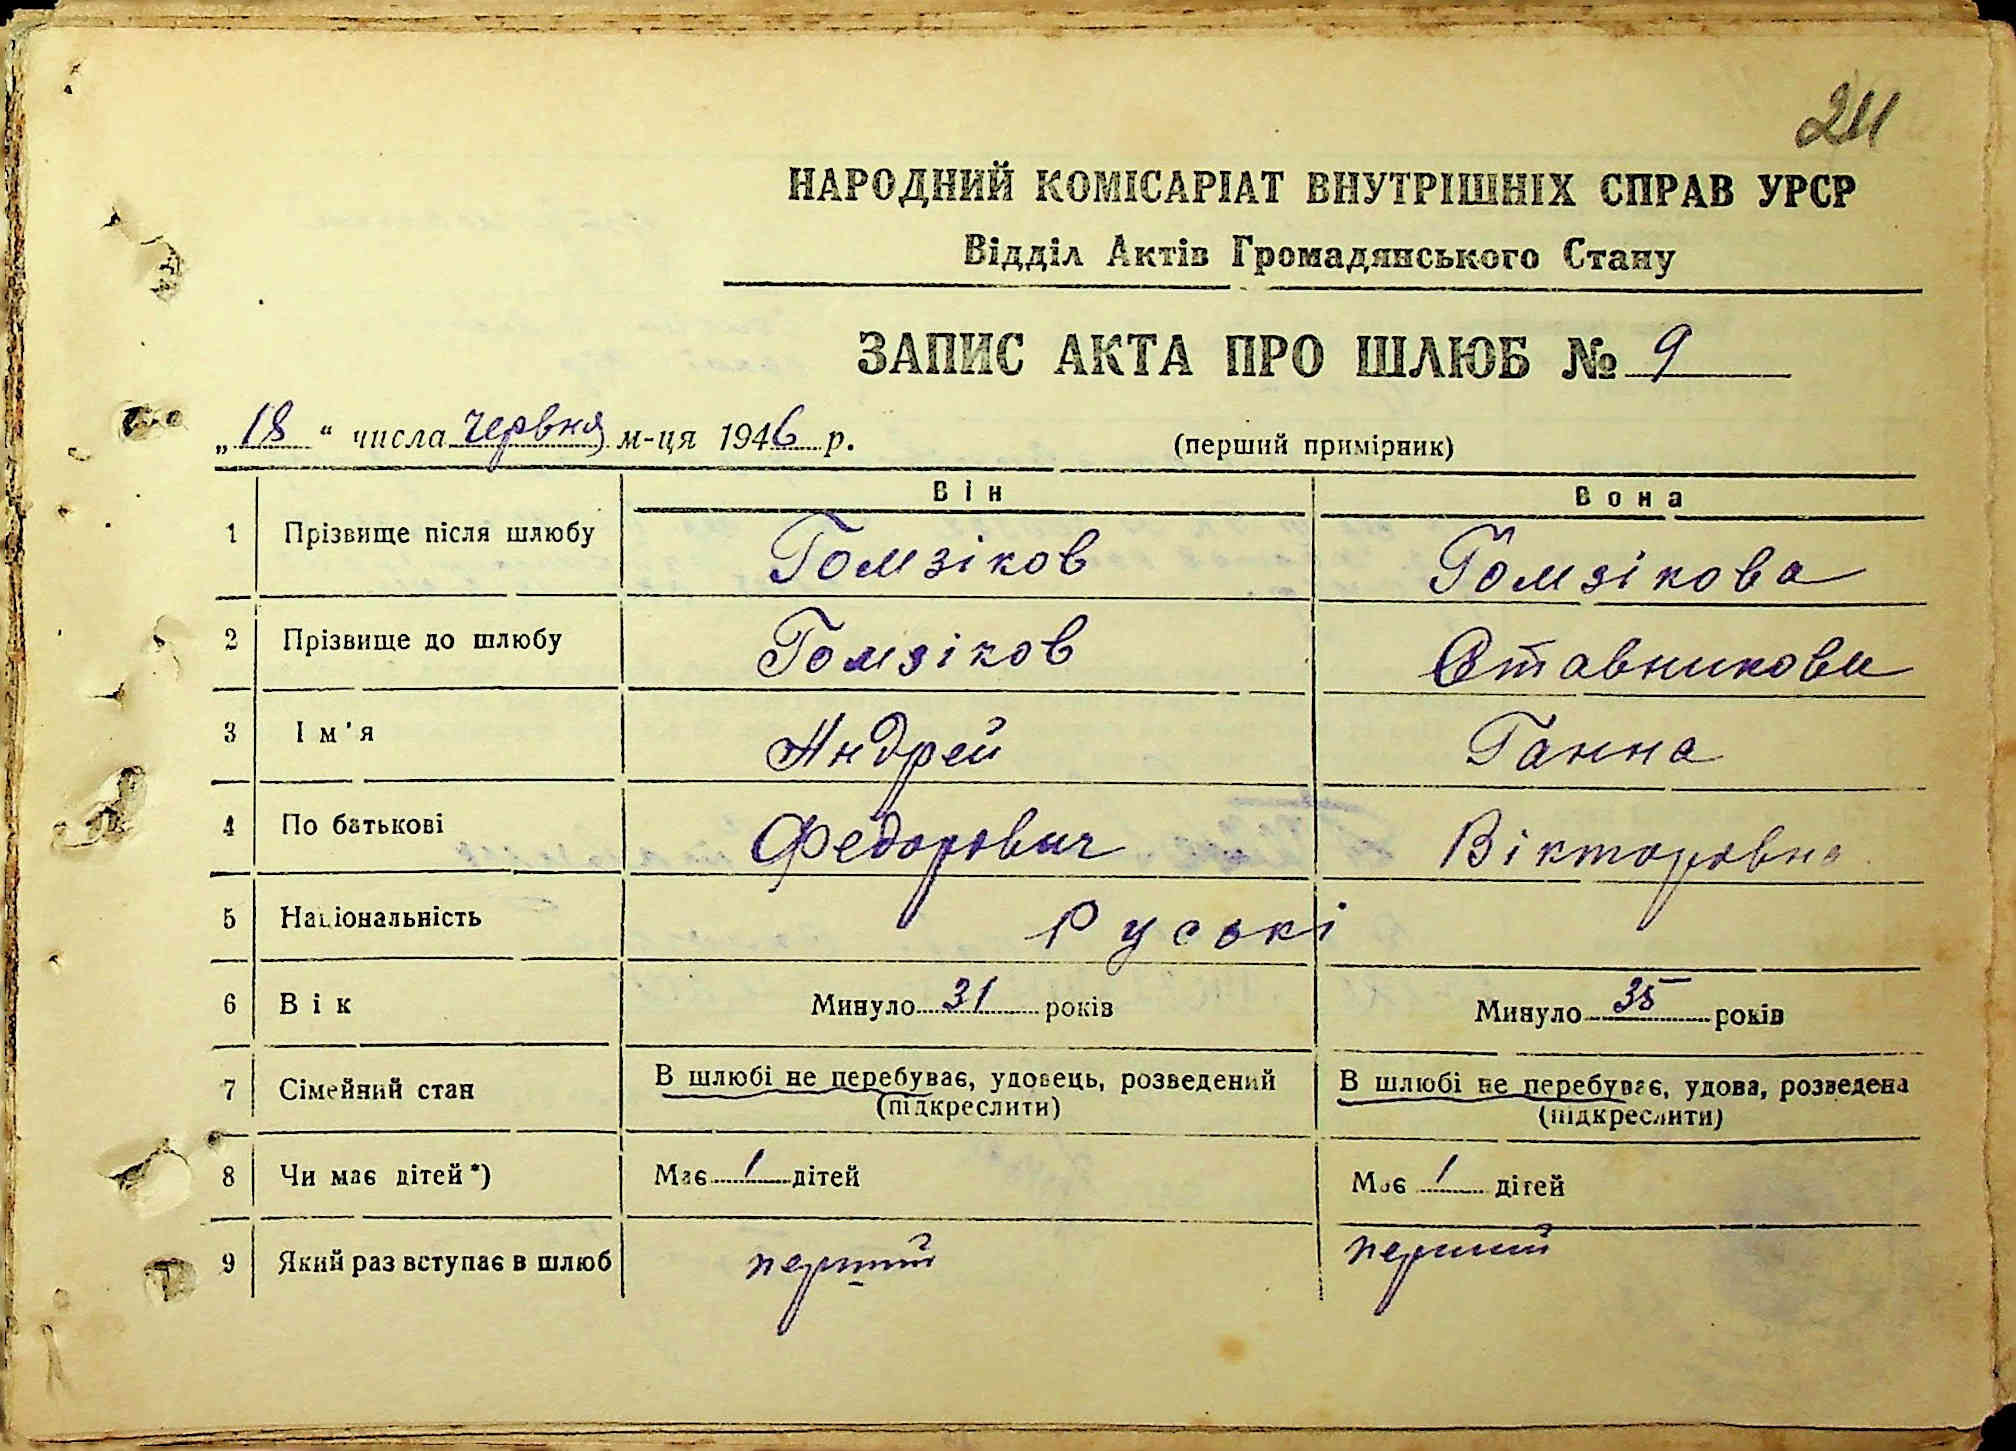 211
НАРОДНИЙ КОМІСАРІАТ ВНУТРІШНІХ СПРАВ УРСР
Відділ Актів Громадянського Стану
ЗАПИС АКТА ПРО ШЛЮБ № 9
„18“ числа червня м-ця 1946 р. (перший примірник)
Він Вона
1 Прізвище після шлюбу Гомзіков Гомзікова
2 Прізвище до шлюбу Гомзіков Ставникова
3 Ім'я Андрей Ганна
4 По батькові Федорович Вікторовна
5 Національність Руські
6 Вік Минуло 31 років Минуло 35 років
7 Сімейний стан В шлюбі не перебуває, удовець, розведений В шлюбі не перебуває, удова, розведена
(підкреслити) (підкреслити)
8 Чи має дітей*) Має 1 дітей Має 1 дітей
9 Який раз вступає в шлюб перший перший